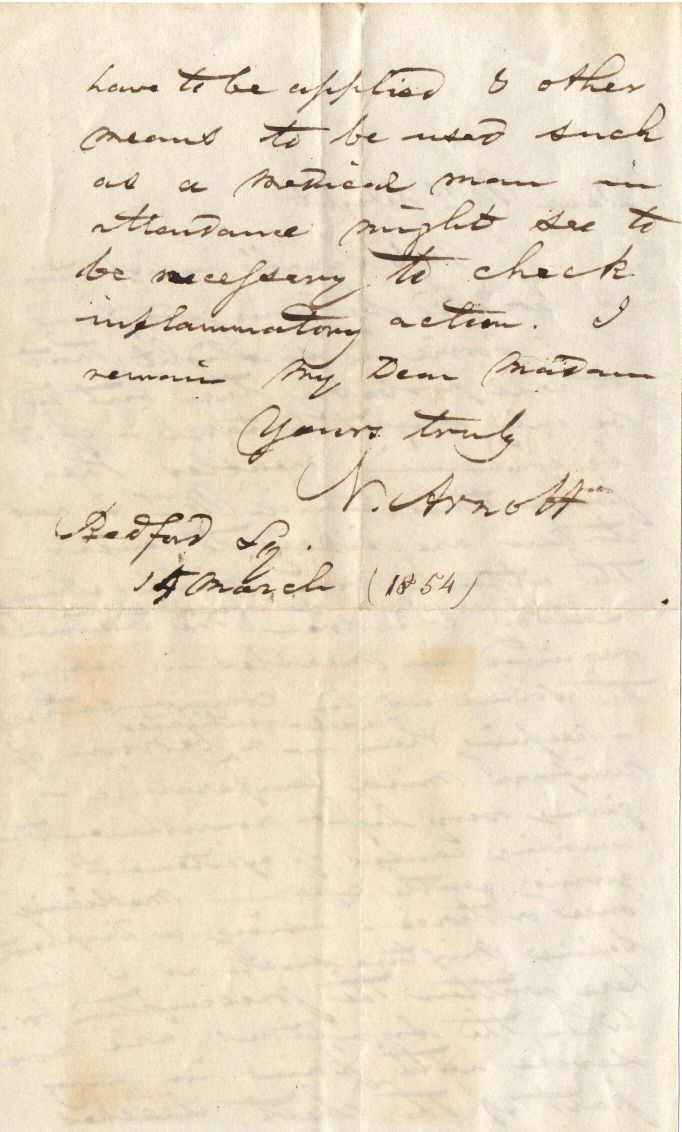 have to be applied & other
means to be used such
as a medical man in
attendance might see to
be necessary to check
inflammatory action. I
remain My Dear Madam
Yours truly
N. Arnott
Bedford Sq.
14 March (1854)